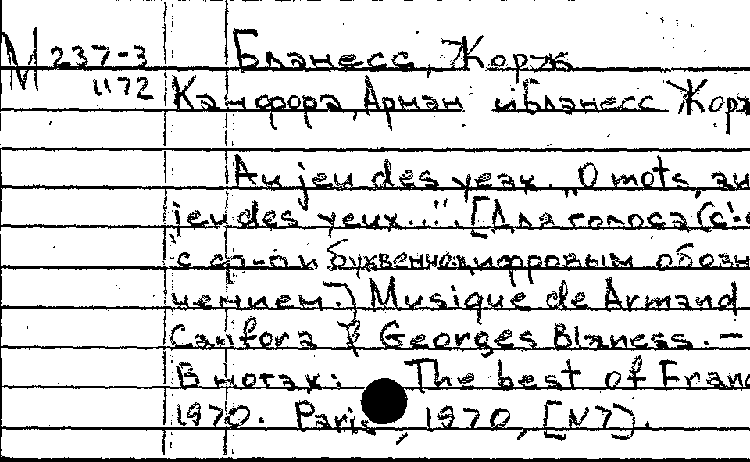 М 237-3 Бланесс, Жорж
1172 Канфора, Арман и Бланесс Жорж
Au jeu des yeux. "O mots, au
jeu des yeux...". [Для голоса (c!-
с ф-п и буквенно-цифровым обозн
чением.] Musique de Armand
Canfora & Georges Blaness. –
В нотах: The best of Franc
1970. Paris, 1970, [N7].